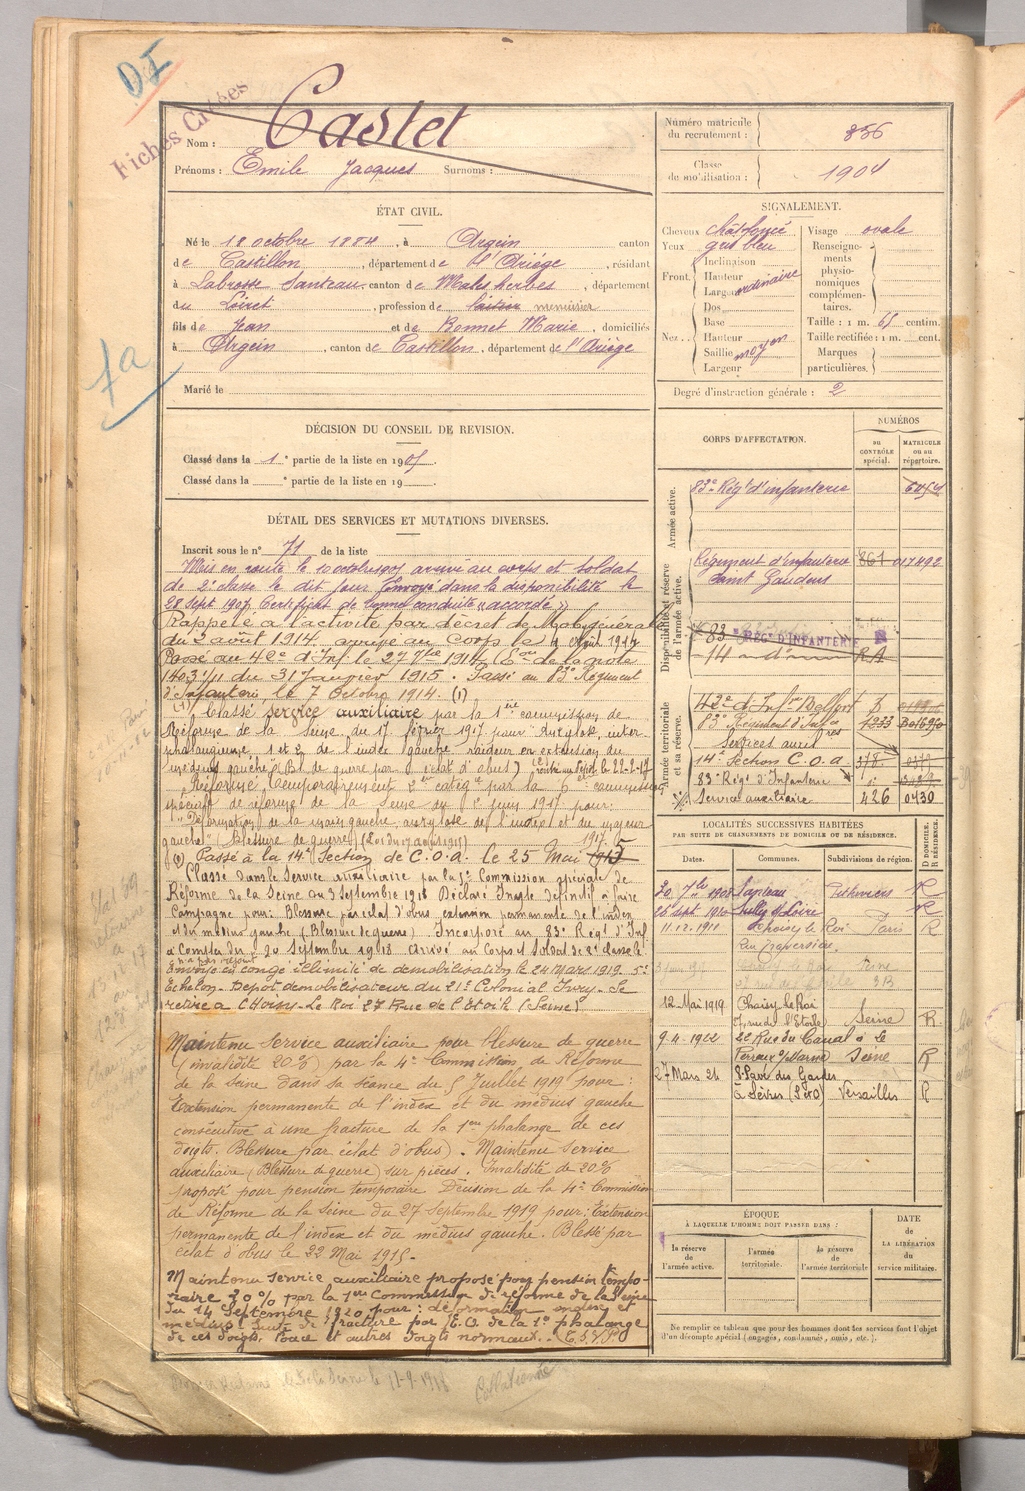 DI
Fiches Croisées
Nom : Castet
Prénoms : Emile Jacques Surnoms :
Numéro matricule du recrutement : 856
Classe de mobilisation : 1904
ÉTAT CIVIL.
Né le 18 octobre 1884, à Argein canton
de Castillon, département de l'Ariége, résidant
à Labrosse Santeau canton de Malesherbes, département
du Loiret, profession de laitier menuisier
fils de Jean et de Bonnet Marie, domiciliés
à Argein, canton de Castillon, département de l'Ariége
Marié le
1a
SIGNALEMENT.
Cheveux chât foncé
Yeux gris bleu
Front. Inclinaison
Hauteur
Largeur
ordinaire
Nez. Dos
Base
Hauteur
Saillie moyen
Largeur
Visage ovale
Renseignements physionomiques complémentaires.
Taille : 1 m. 65 centim.
Taille rectifiée : 1 m. cent.
Marques particulières.
Degré d'instruction générale : 2
DÉCISION DU CONSEIL DE REVISION.
Classé dans la 1e partie de la liste en 1905.
Classé dans la e partie de la liste en 19
DÉTAIL DES SERVICES ET MUTATIONS DIVERSES.
Inscrit sous le n° 71 de la liste
Mis en route le 10 octobre 1905 arrivé au corps et soldat
de 2e classe le dit jour. Envoyé dans la disponibilité le
28 sept 1907 Certificat de bonne conduite « accordé »
Rappelé à l'activité par décret de Mob. générale
du 2 août 1914. arrivé au Corps le 4 Août 1914
Passé au 42e d'Inf. le 27 1914 de la note
1403/11 du 31 janvier 1915. Passé au 83e Régiment
d'Infanterie, le 7 Octobre 1914. (1)
(1) Classé service auxiliaire par la 1ère commission de
Réforme de la Seine du 17 février 1917 pour Ankylose, inter-
phalangienne 1 et 2 de l'index gauche raideur en extension du
médius gauche (Bl. de guerre par éclat d'obus) le 22-2-17
Réformé Temporairement 2e catégie par la 6e commission
spéciale de réforme de la Seine du 1er juin 1917 pour :
"Déformation de la main gauche, ankylose de l'index et du majeur
gauche" (Blessure de guerre) (Loi du 17 août 1915)
(2) Passé à la 14e Section de C.O.A. le 25 Mai 1917 1915
Classé dans le Service auxiliaire par la 5e Commission spéciale de
Réforme de la Seine du 3 Septembre 1918 Déclaré Inapte définitif à faire
Campagne pour: Blessure par éclat d'obus, extension permanente de l'index
et du médius gauche (Blessure de guerre) Incorporé au 83e Régt d'Inf
à Compter du 20 Septembre 1918 Arrivé au Corps et Soldat de 2e classe le
n'a pas rejoint
Envoyé en congé illimité de démobilisation le 24 Mars 1919 5e
Echelon - Dépot démobilisateur du 21e Colonial Ivry - Se
retire à Choisy-Le Roi 27 Rue de l'Etoile (Seine)
Maintenu Service auxiliaire pour blessure de guerre
(invalidité 20%) par la 4e Commission de Réforme
de la Seine dans sa séance du 5 Juillet 1919 pour :
Extension permanente de l'index et du médius gauche
consécutive à une fracture de la 1ère phalange de ces
doigts. Blessure par éclat d'obus). Maintenu Service
auxiliaire (Blessure de guerre) sur pièces. Invalidité de 20%
proposé pour pension temporaire Décision de la 4e Commission
de Réforme de la Seine du 27 Septembre 1919 pour: Extension
permanente de l'index et du médius gauche. Blessé par
éclat d'obus le 22 Mai 1915.
Maintenu service auxiliaire proposé pour pension tempo-
raire 20% par la 1ère Commission de réforme de la Seine
du 14 Septembre 1920 pour : déformation index et
médius suite de fracture par E.O. de la 1e phalange
de ces doigts. Pouce et autres doigts normaux.
CORPS D'AFFECTATION.
NUMÉROS
au CONTRÔLE spécial.
MATRICULE ou au répertoire.
Armée active.
83e Régt d'infanterie
Disponibilité et réserve de l'armée active.
Régiment d'infanterie 861 017492
Saint Gaudens
83e RÉGt D'INFANTERIE
Armée territoriale et sa réserve.
42e d'Infie Belfort
83e Régiment d'Infie 1233
Services auxres
14e Section C.O.A.
83e Régt d'Infanterie
Service auxiliaire 426 0430
LOCALITÉS SUCCESSIVES HABITÉES
PAR SUITE DE CHANGEMENTS DE DOMICILE OU DE RÉSIDENCE.
Dates. Communes. Subdivisions de région. D DOMICILE. R RÉSIDENCE.
20 7bre 1908 Santeau Pithiviers R
26 sept 1910 Sully s/ Loire R
11.12.1911 Choisy le Roi Paris R
Rue Traversière
12 Mai 1919 Choisy le Roi
27, rue de l'Etoile Seine R
9.4.1922 2e Rue du Canal à Le
Perreux s/ Marne Seine R
27 Mars 26 8 Pavé des Gardes
à Sèvres (S et O) Versailles R
ÉPOQUE
À LAQUELLE L'HOMME DOIT PASSER DANS :
la réserve de l'armée active.
l'armée territoriale.
la réserve de l'armée territoriale
DATE de LA LIBÉRATION du service militaire.
Ne remplir ce tableau que pour les hommes dont les services font l'objet
d'un décompte spécial (engagés, condamnés, omis, etc.).
Collationné